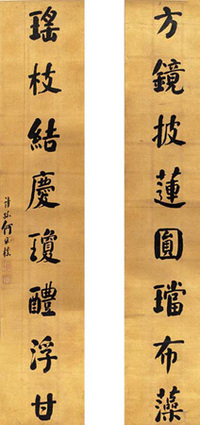 方鏡披蓮圓璫布藻
瑤枝結慶瓊醴浮甘